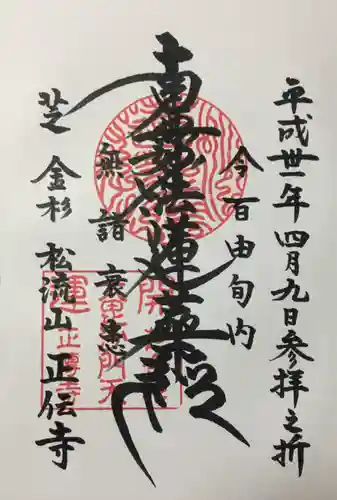 平成卅一年四月九日参拝之折
令百由旬内
南無妙法蓮華経
無諸衰患
芝 金杉 松流山 正伝寺